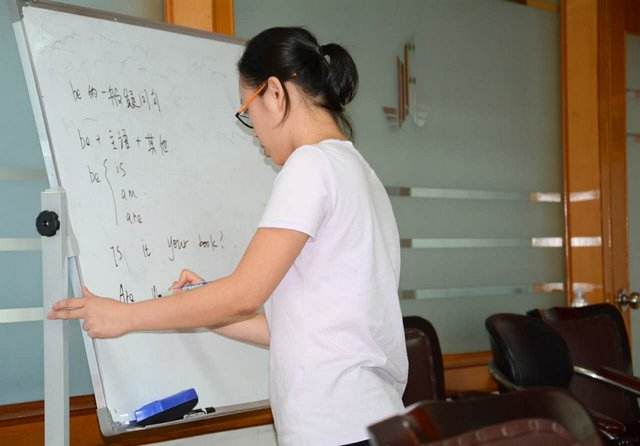 be 的一般疑问句
be + 主语 + 其他
be { is
am
are
Is it your book?
Are